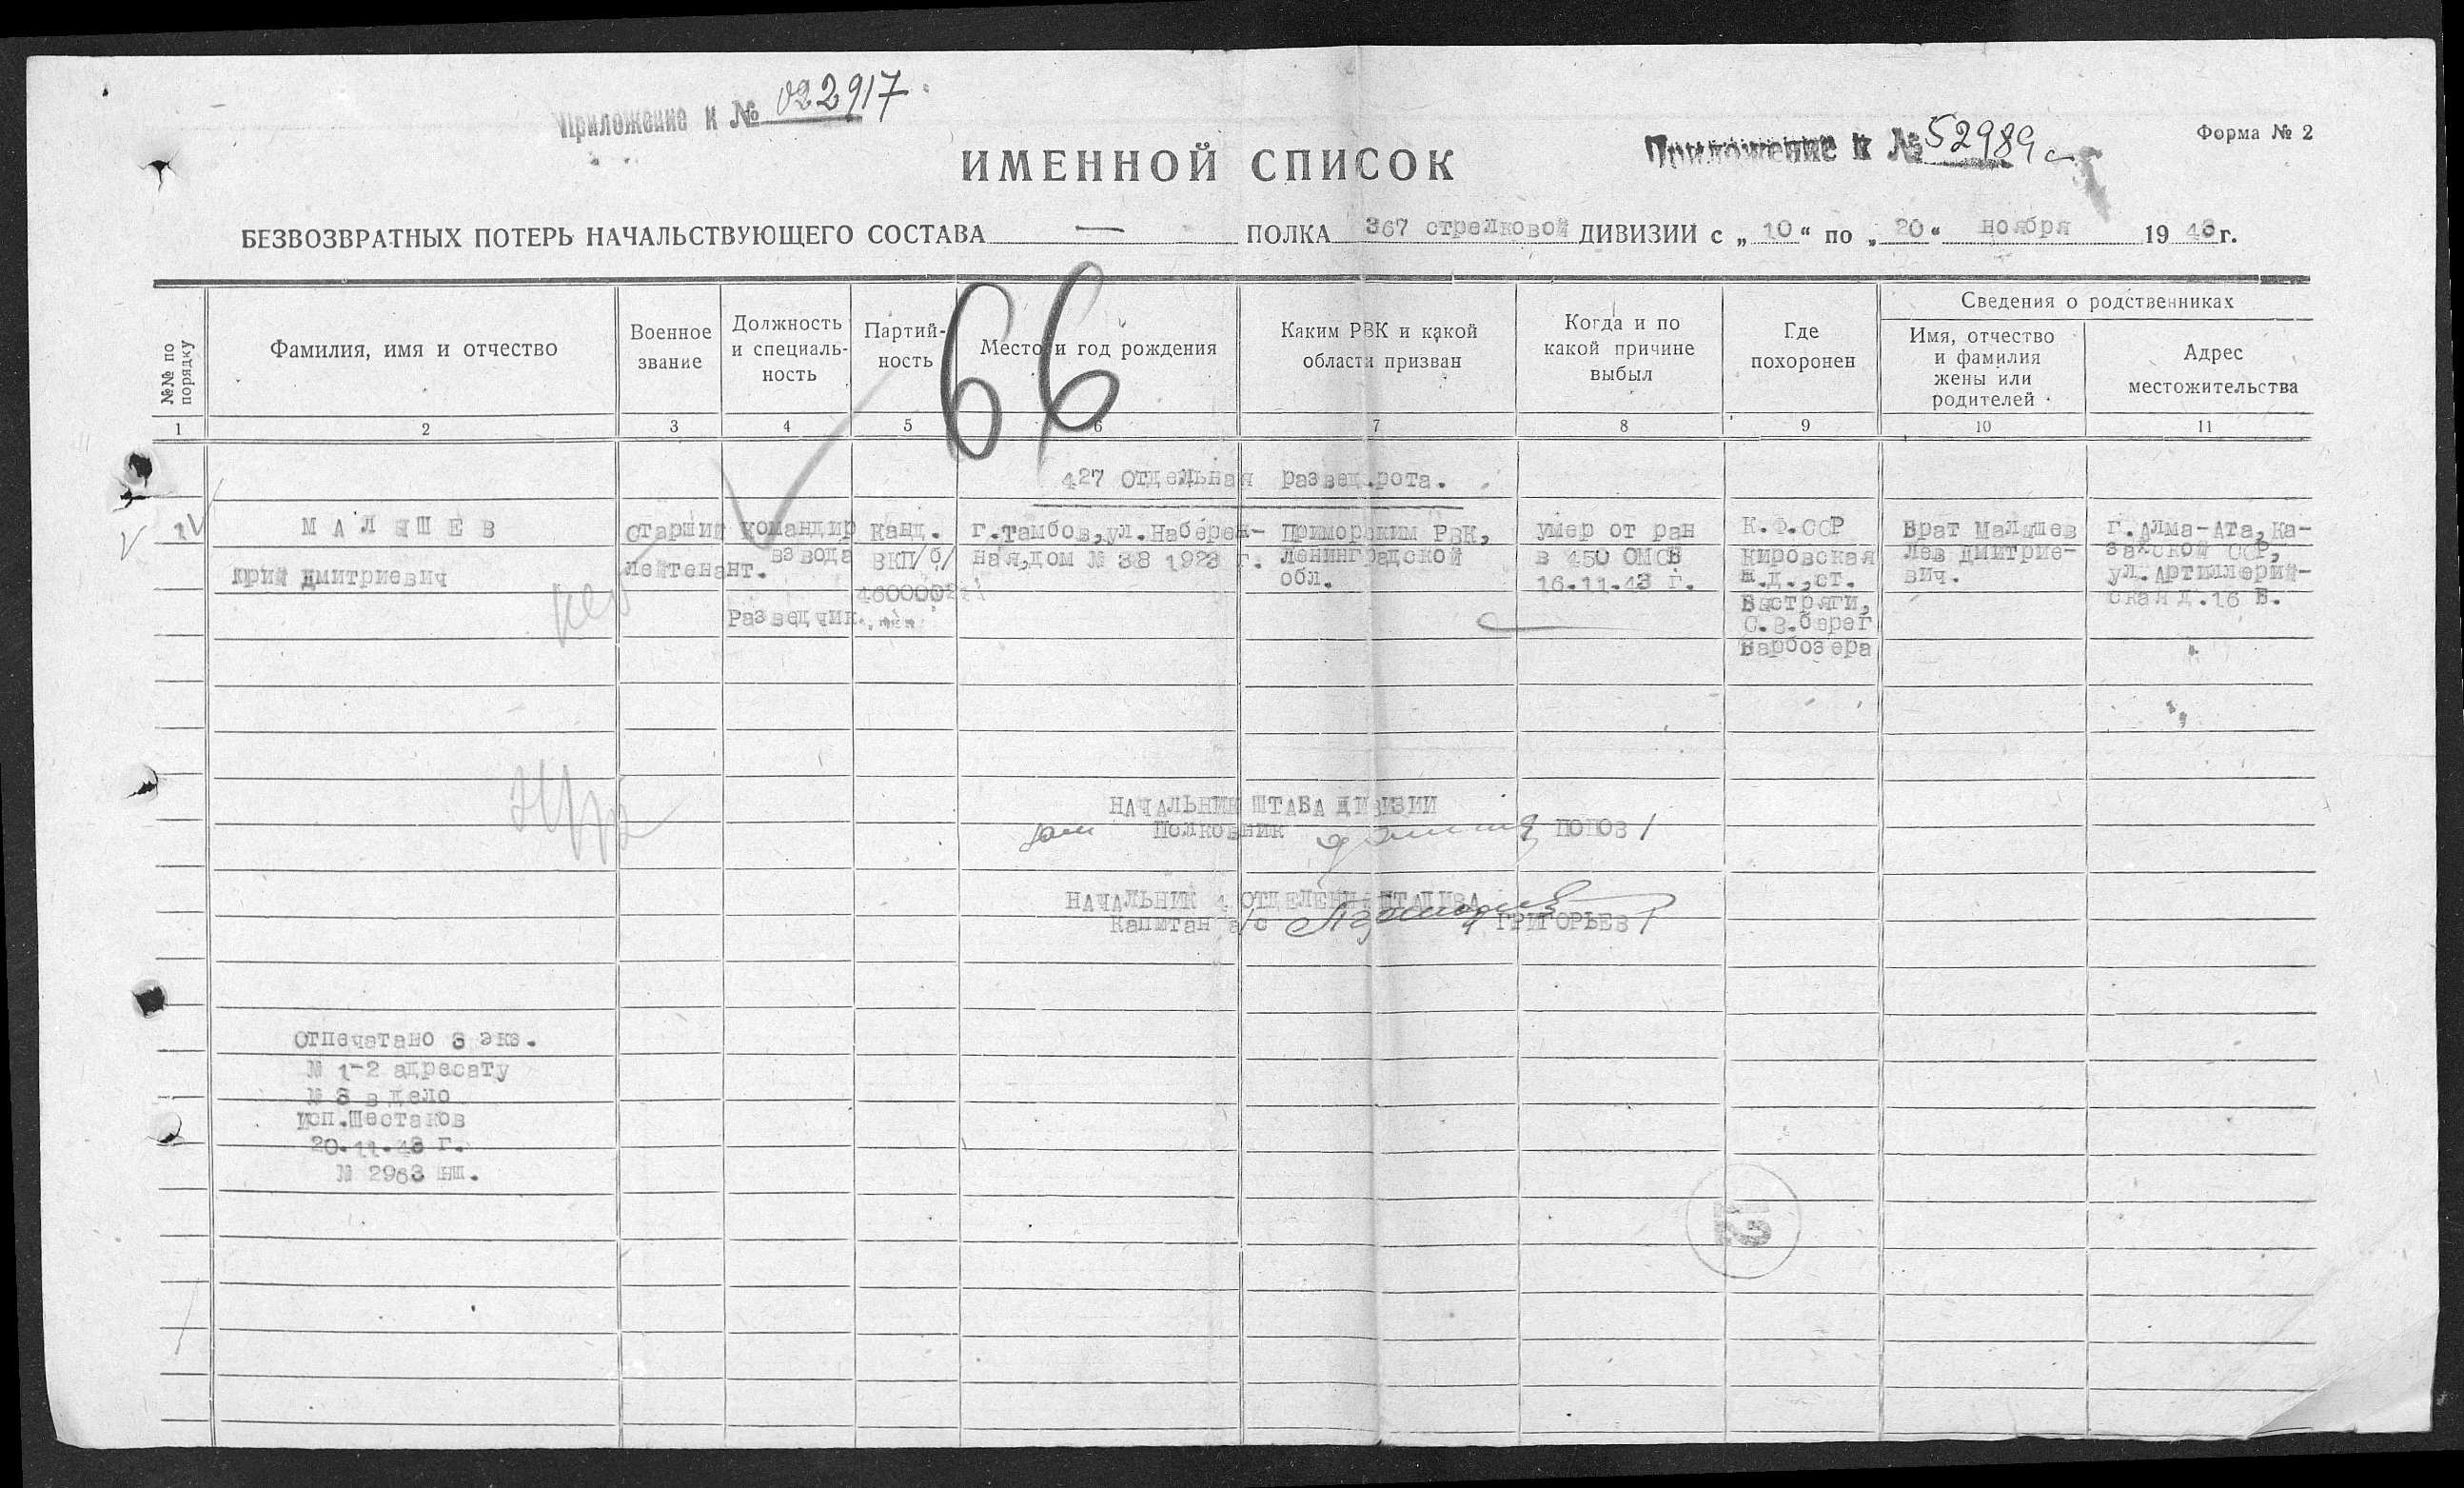 Приложение к № 022917
Приложение к № 52989 с
Форма № 2
ИМЕННОЙ СПИСОК
БЕЗВОЗВРАТНЫХ ПОТЕРЬ НАЧАЛЬСТВУЮЩЕГО СОСТАВА — ПОЛКА 367 стрелковой ДИВИЗИИ с „ 10 “ по „ 20 “ ноября 19 43 г.
66
№№ по порядку
Фамилия, имя и отчество
Военное
звание
Должность
и специаль-
ность
Партий-
ность
Место и год рождения
Каким РВК и какой
области призван
Когда и по
какой причине
выбыл
Где
похоронен
Сведения о родственниках
Имя, отчество
и фамилия
жены или
родителей
Адрес
местожительства
1 2 3 4 5 6 7 8 9 10 11
427 Отдельная развед.рота.
1
МАЛЫШЕВ
Юрий Дмитриевич
старший
лейтенант.
командир
взвода
Разведчик.
Канд.
ВКП/б/
г.Тамбов,ул.Набереж-
ная,дом № 38 1923 г.
Приморским РВК,
Ленинградской
обл.
умер от ран
в 450 ОМСБ
16.11.43 г.
К.Ф.ССР
Кировская
ж.д.,ст.
Быстряги,
С.В.берег
Варбозера
Брат Малышев
Лев Дмитрие-
вич.
г.Алма-Ата,Ка-
захской ССР,
ул.Артиллерий-
ская д.16 Б.
НАЧАЛЬНИК ШТАБА ДИВИЗИИ
Полковник ПОПОВ/
НАЧАЛЬНИК 4 ОТДЕЛЕН. ШТАДИВА
Капитан а/с ГРИГОРЬЕВ/
Отпечатано 3 экз.
№ 1-2 адресату
№ 3 в дело
исп.Шестаков
20.11.43 г.
№ 2963 нш.